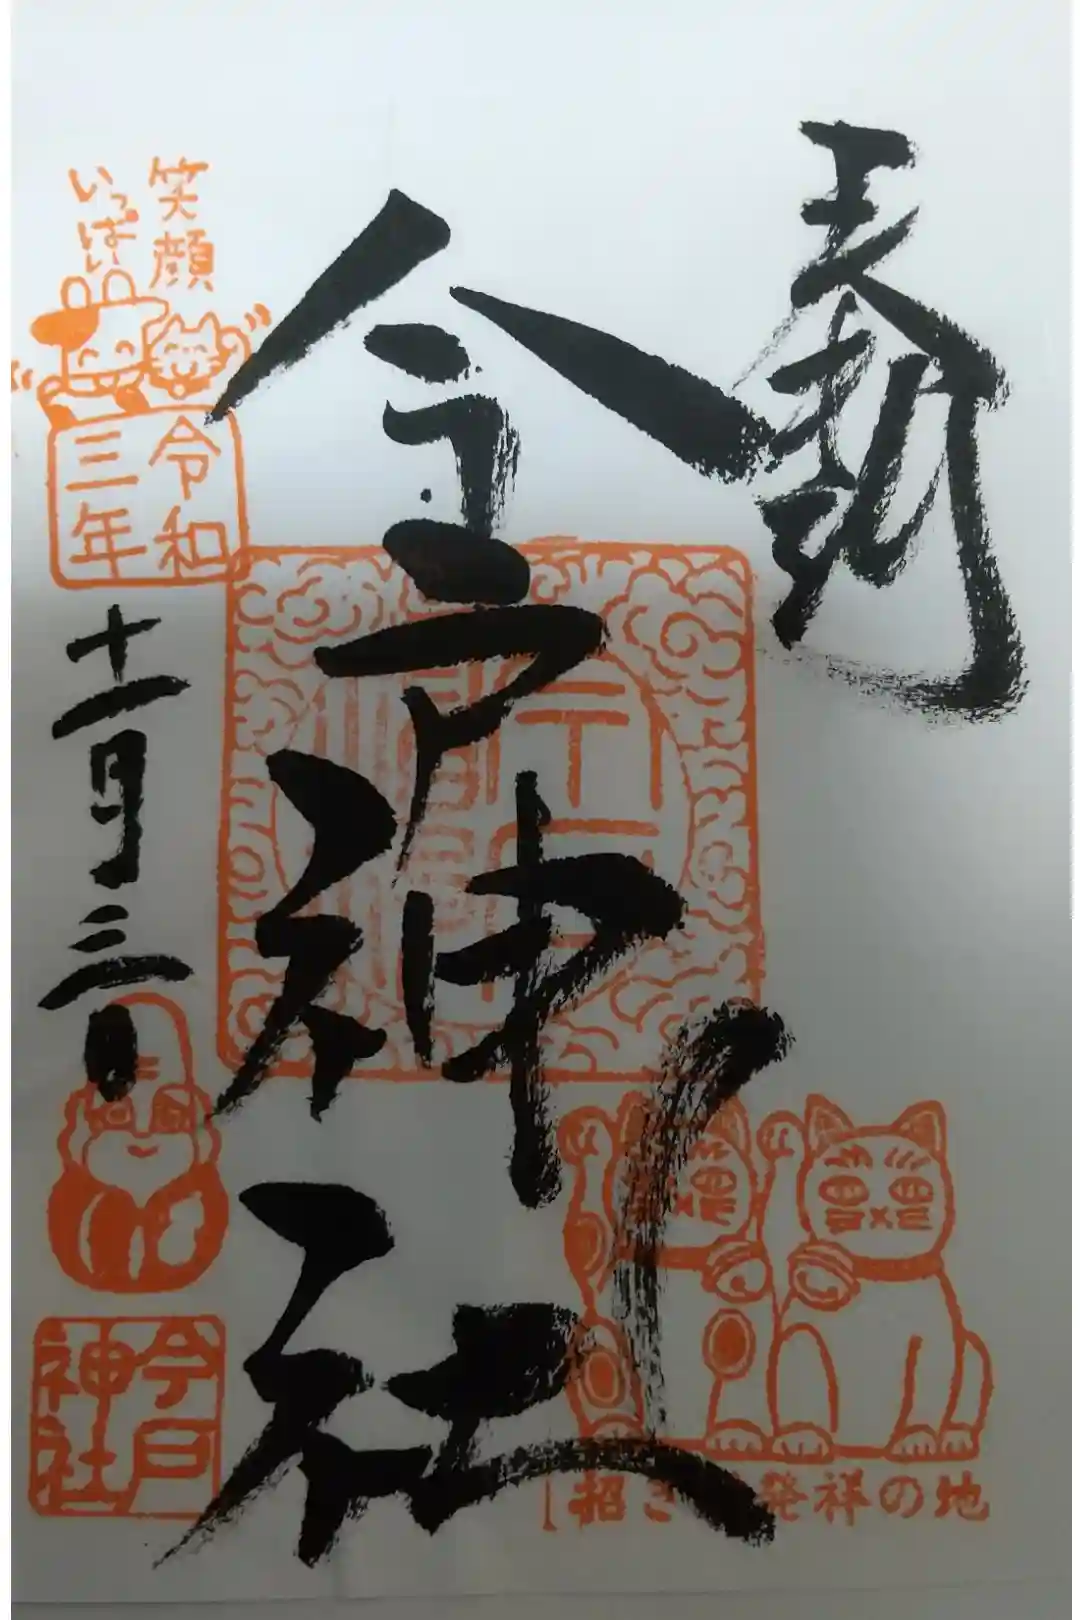 奉拝
今戸神社
笑顔
いっぱい
令和
三年
十一月三日
今戸
神社
招き
発祥の地